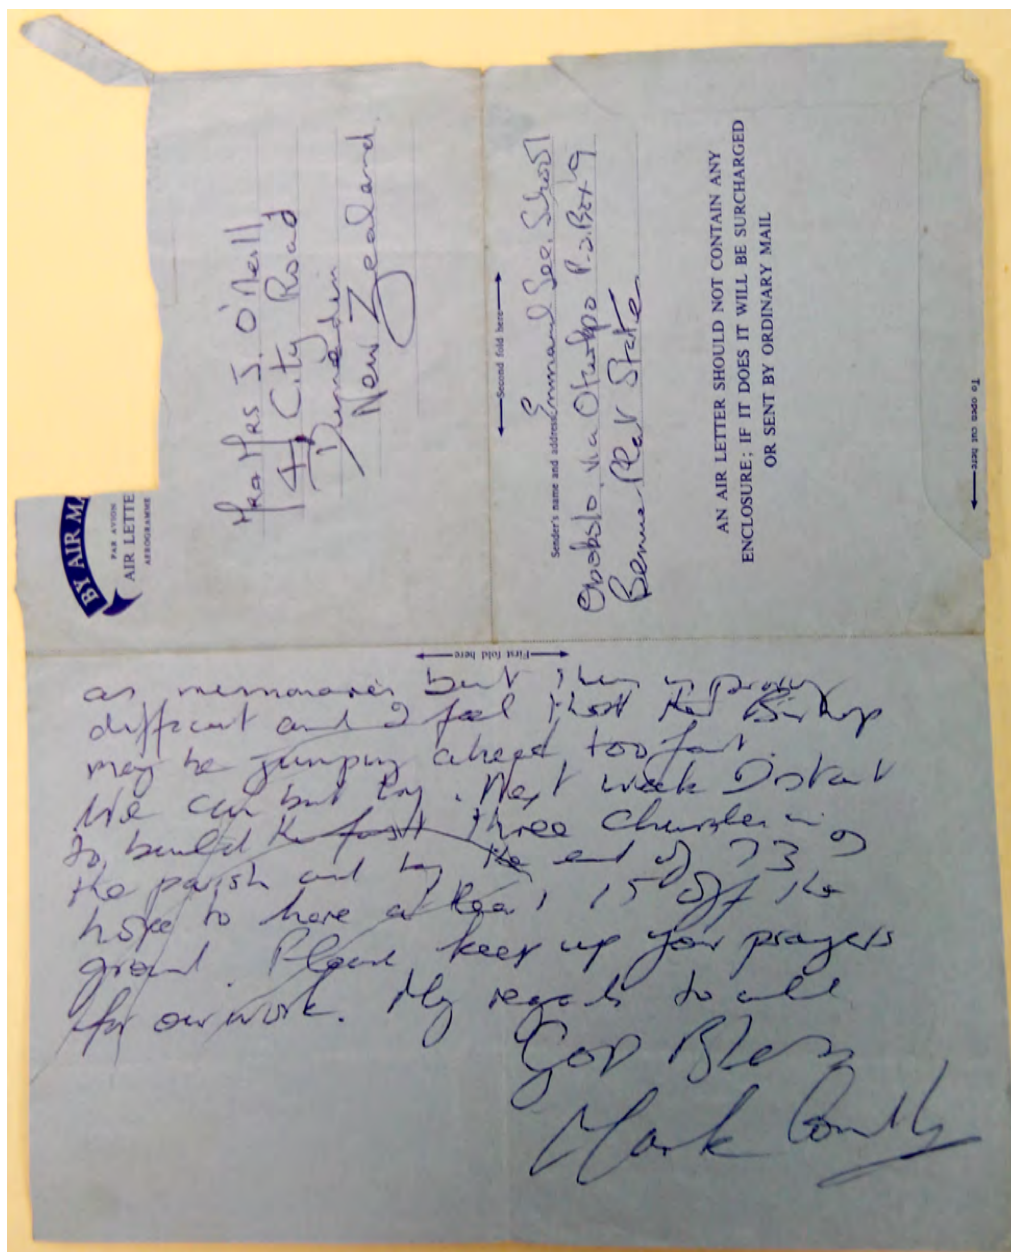 BY AIR MA
PAR AVION
AIR LETTE
AEROGRAMME
Mr & Mrs J. O'Neill
4 City Road
Dunedin
New Zealand.
←Second fold here→
Sender's name and address Emmanuel Sec. School
via Oturkpo P.O. Box 19
Benue-Plat State
AN AIR LETTER SHOULD NOT CONTAIN ANY
ENCLOSURE; IF IT DOES IT WILL BE SURCHARGED
OR SENT BY ORDINARY MAIL
To open cut here→
←First fold here→
as but
difficult and I feel that the Bishop
may be jumping ahead too fast.
We can but try. Next week I start
to build the first three churches in
the parish and by the end of 73 I
hope to have at least 15 off the
ground. Please keep up your prayers
for our work. My regards to all
God Bless
Mark